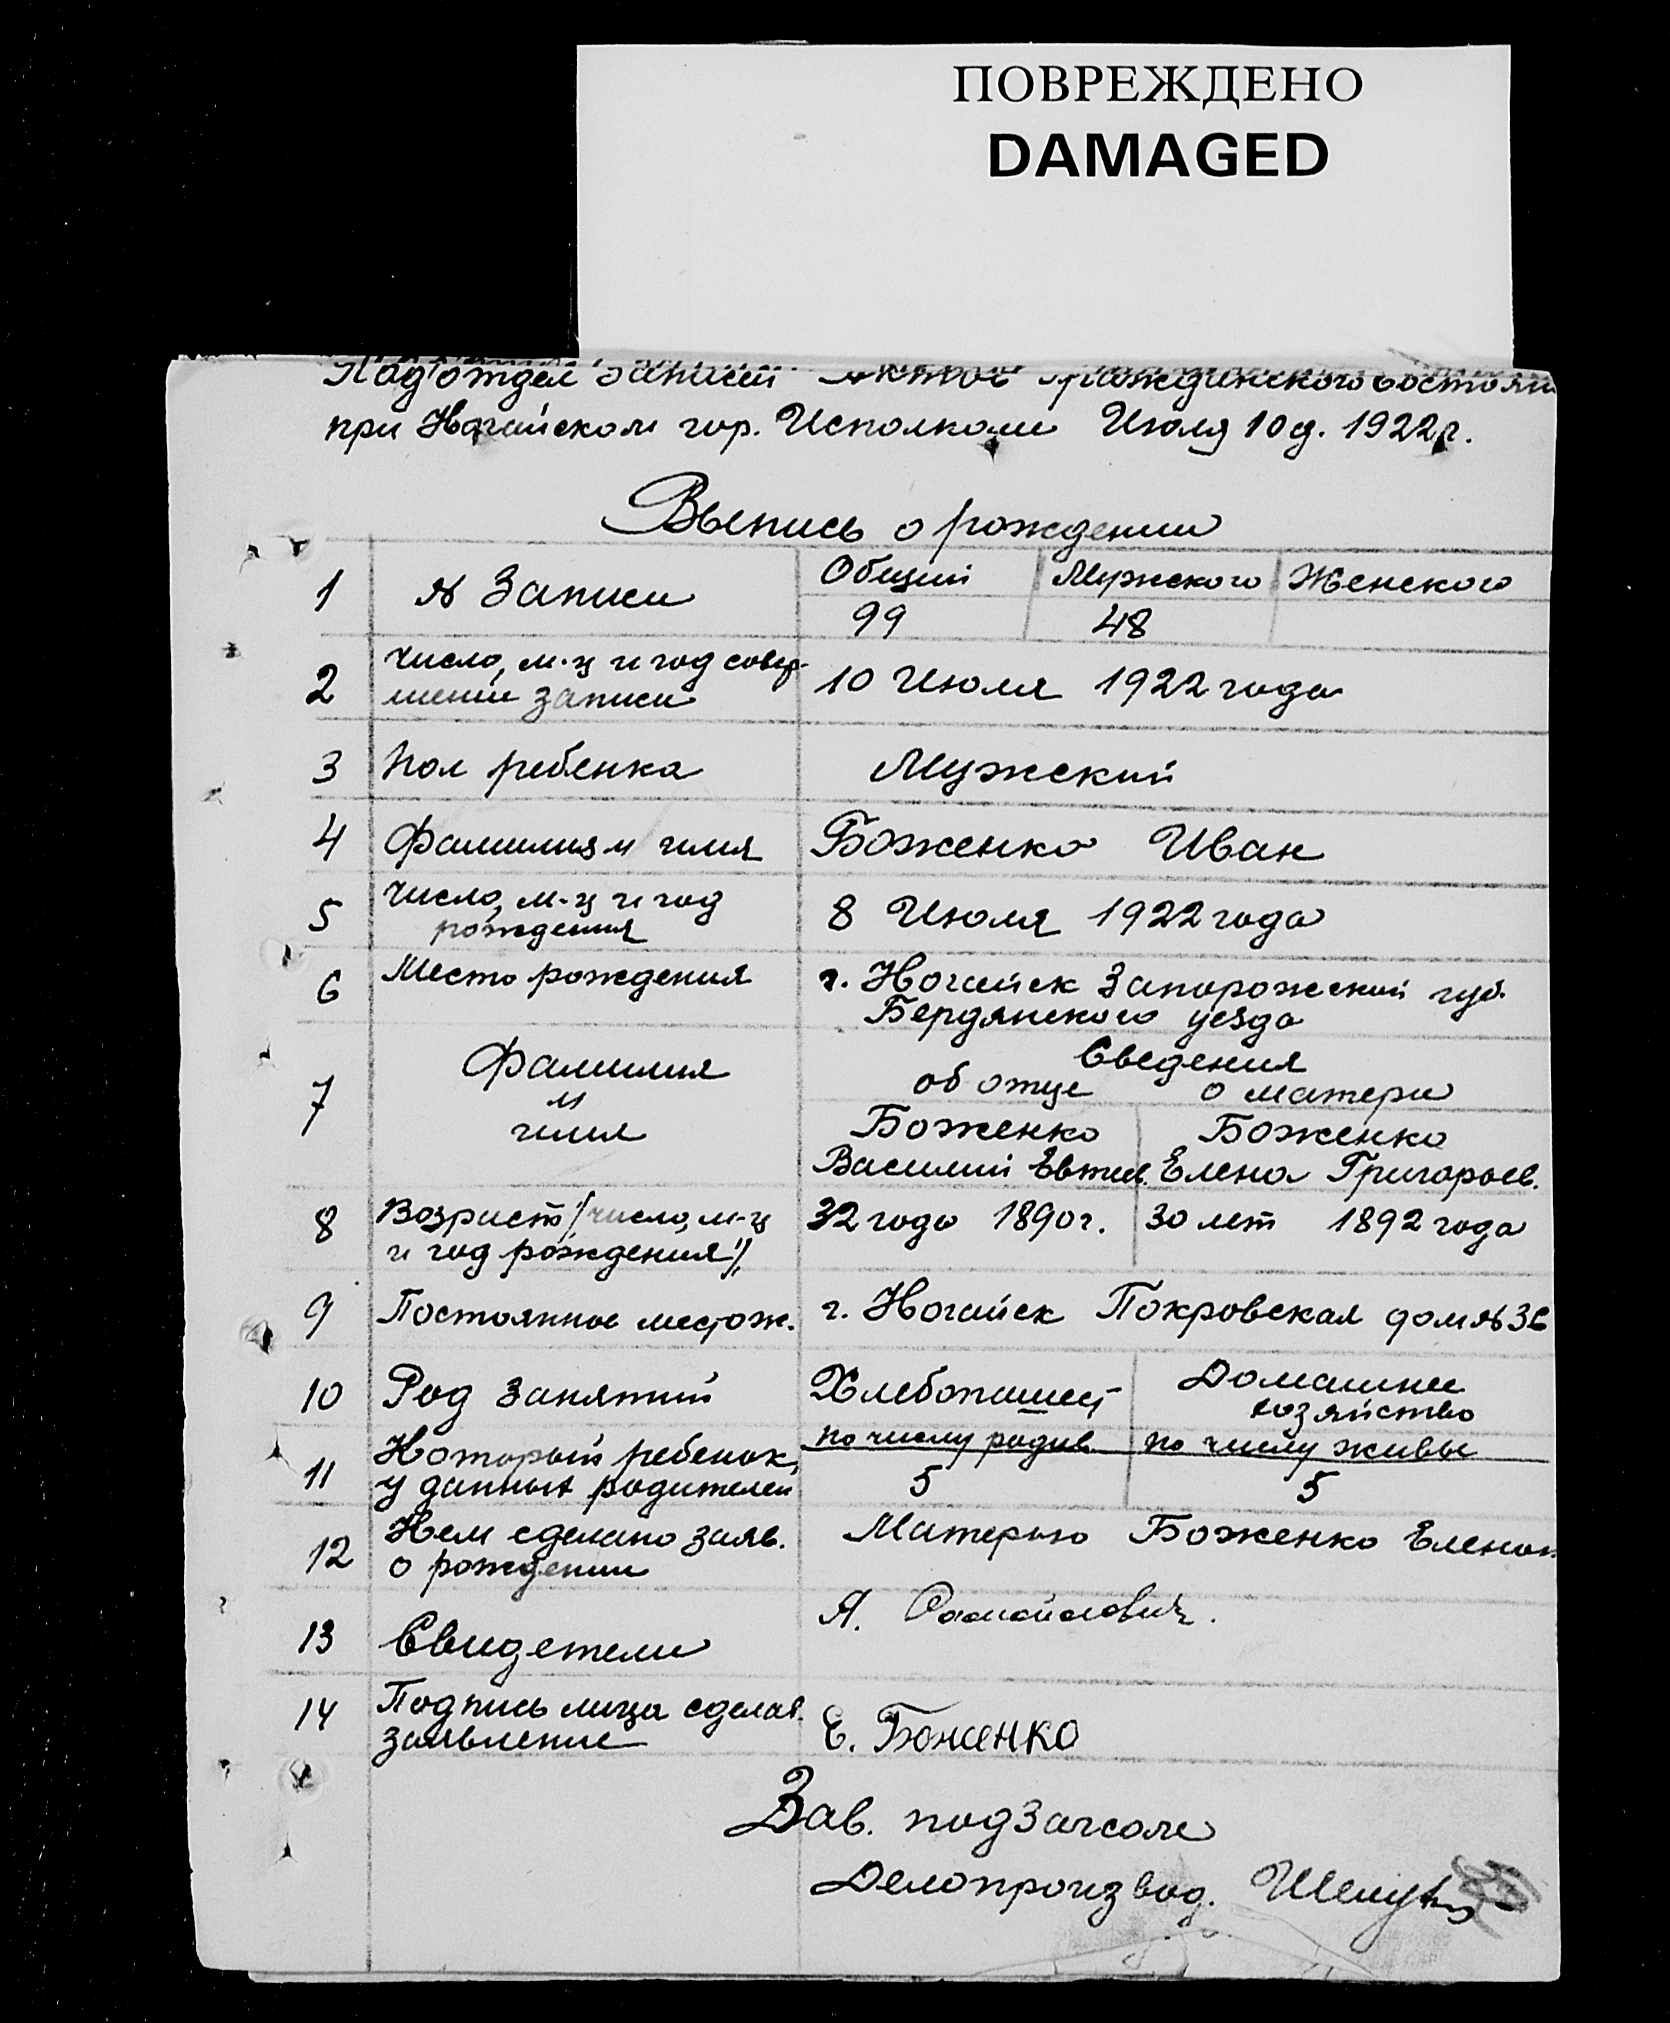 ПОВРЕЖДЕНО
DAMAGED
Подотдел Записи Актов Гражданского Состоян
при Ногайском гор. Исполкоме Июля 10 д. 1922 г.
Выпись о рождении
1 № Записи Общий Мужского Женского
99 48
2 Число, м-ц и год совер-
шении записи 10 Июля 1922 года
3 Пол ребенка Мужский
4 Фамилия и имя Боженко Иван
5 Число, м-ц и год
рождения 8 Июля 1922 года
6 Место рождения г. Ногайск Запорожской губ.
Бердянского уезда
7 Фамилия
и
имя
Сведения
об отце о матери
Боженко Боженко
Василий Евтих. Елена Григорьев.
8 Возраст /число, м-ц
и год рождения/ 32 года 1890 г. 30 лет 1892 года
9 Постоянное местож. г. Ногайск Покровская дом № 36
10 Род занятий Хлебопашест Домашнее
хозяйство
11 Который ребенок,
у данных родителей
по числу родив. по числу живы
5 5
12 Кем сделано заяв.
о рождении Матерью Боженко Еленой
13 Свидетели А. Самойлович.
14 Подпись лица сделав.
заявление Е. Боженко
Зав. подзагсом
Делопроизвод.